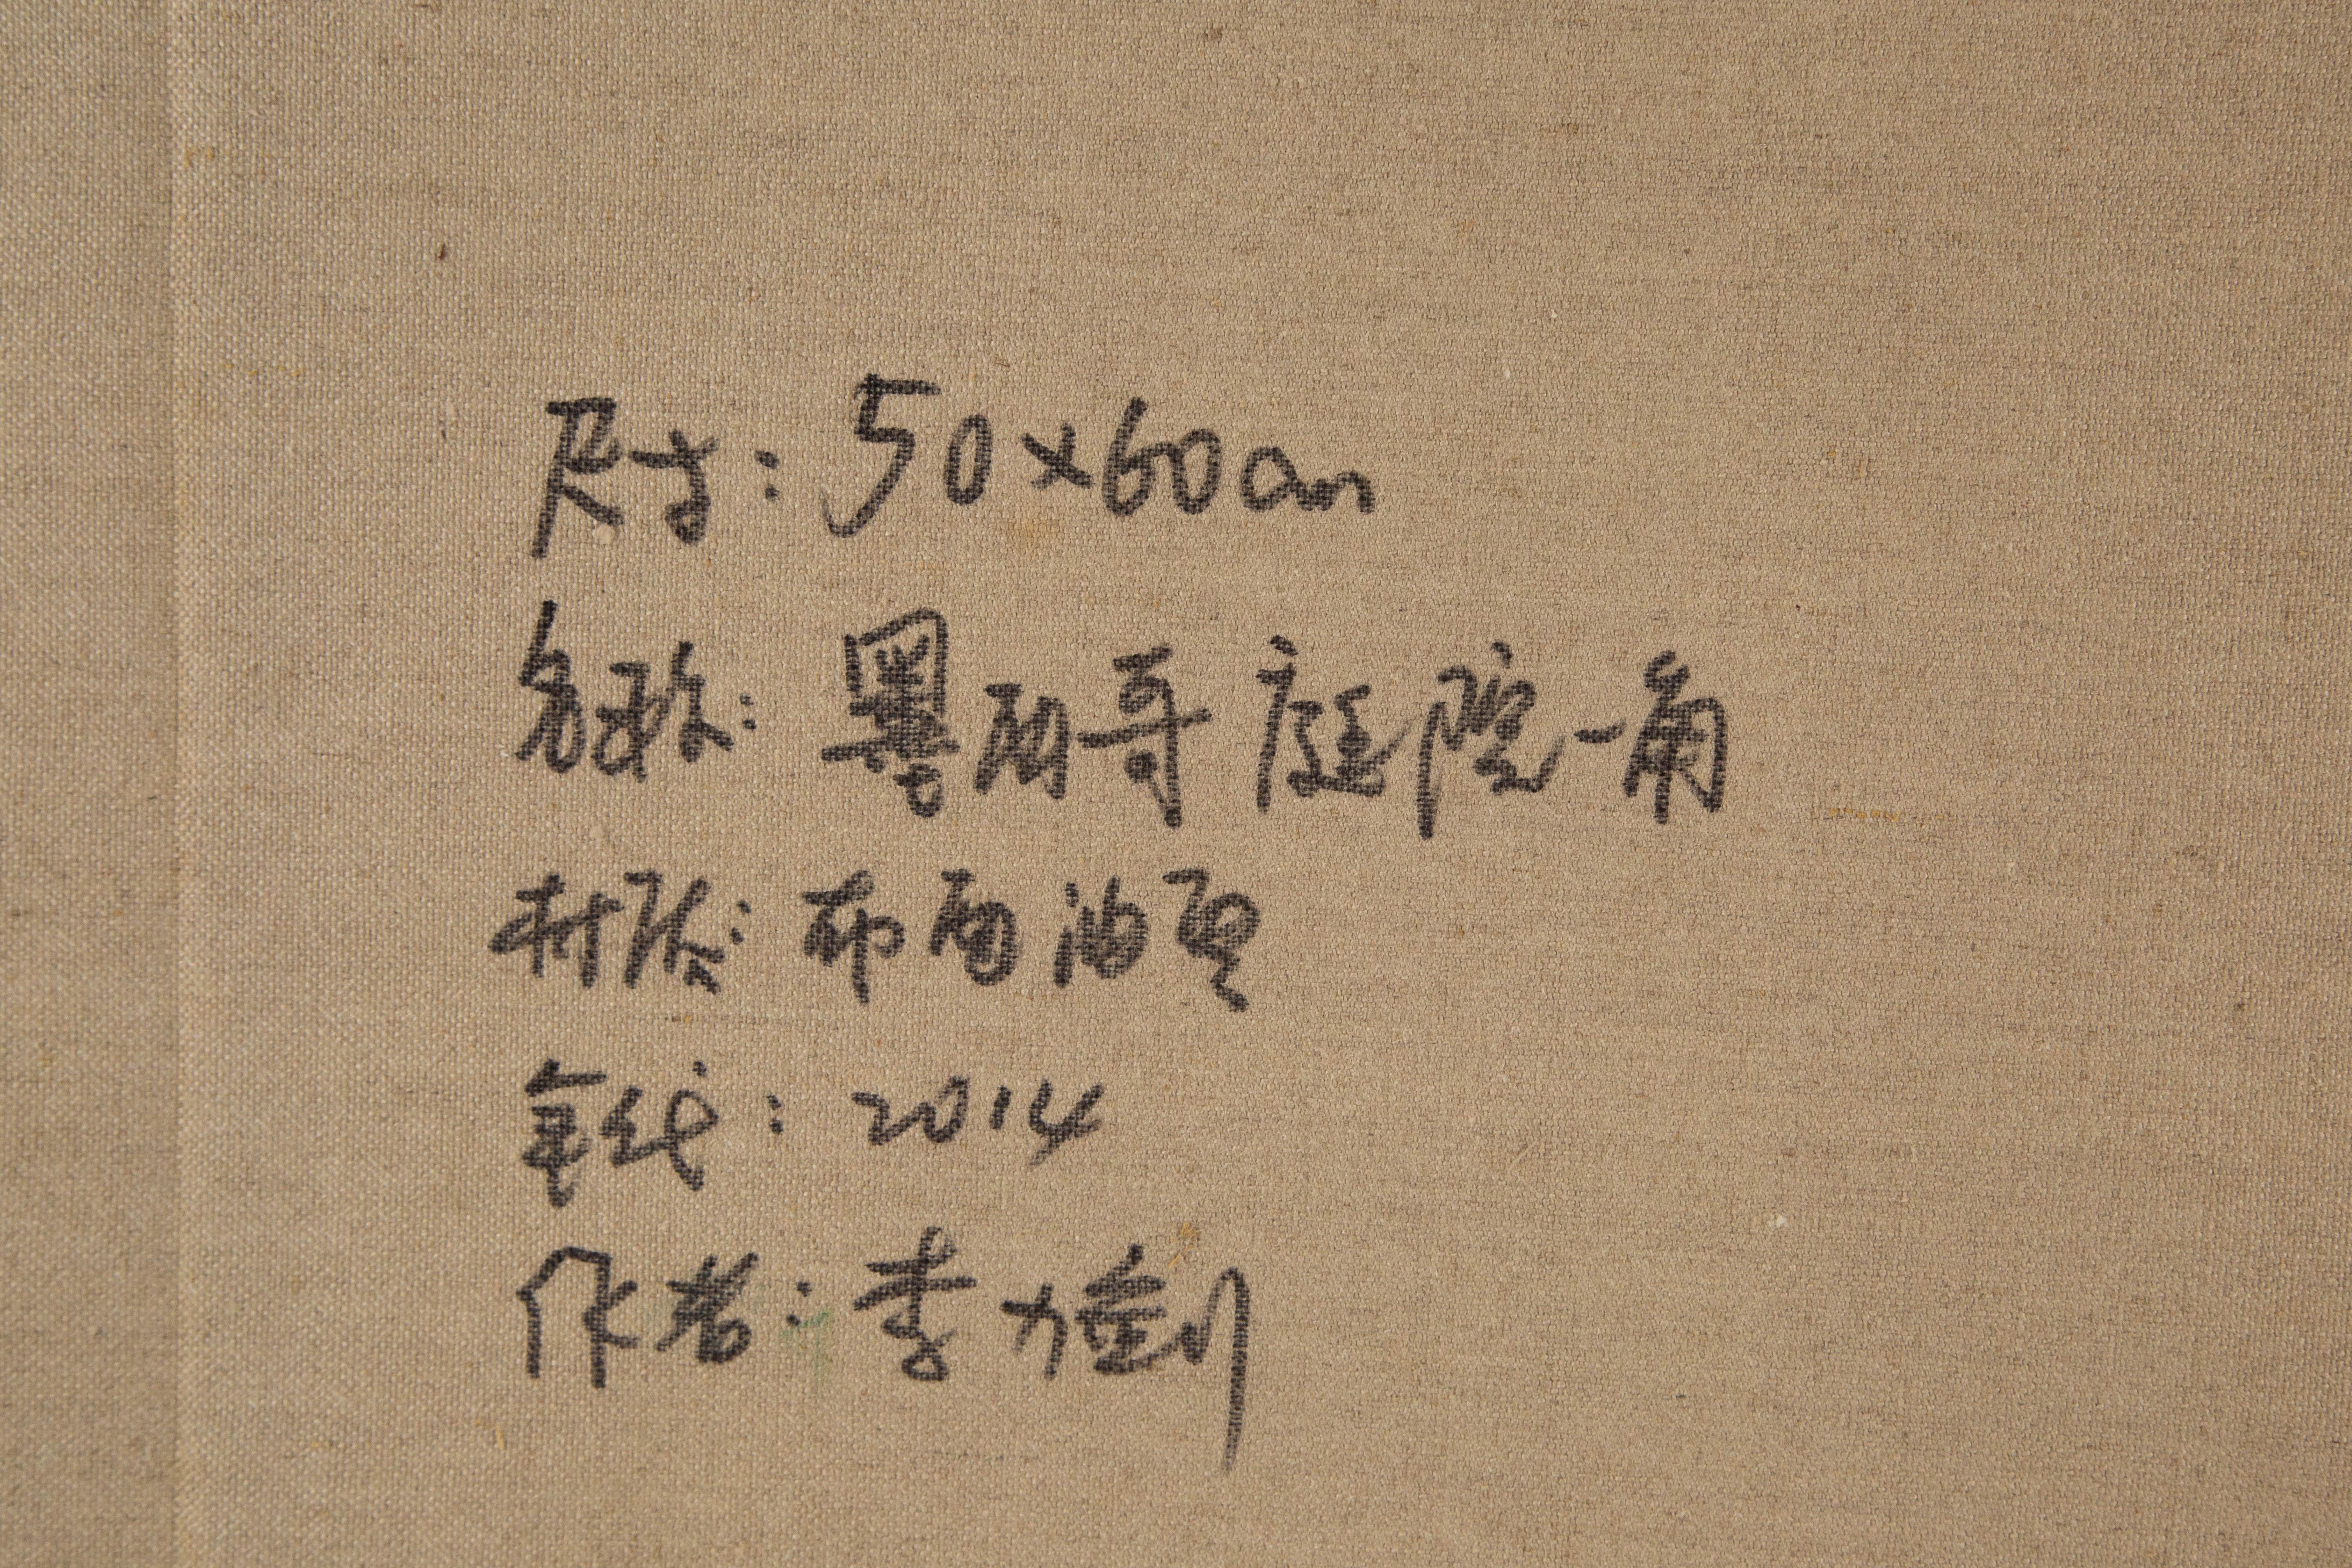 尺寸: 50×60cm
名称: 墨西哥庭院一角
材质: 布面油画
年代: 2014
作者: 李力剑